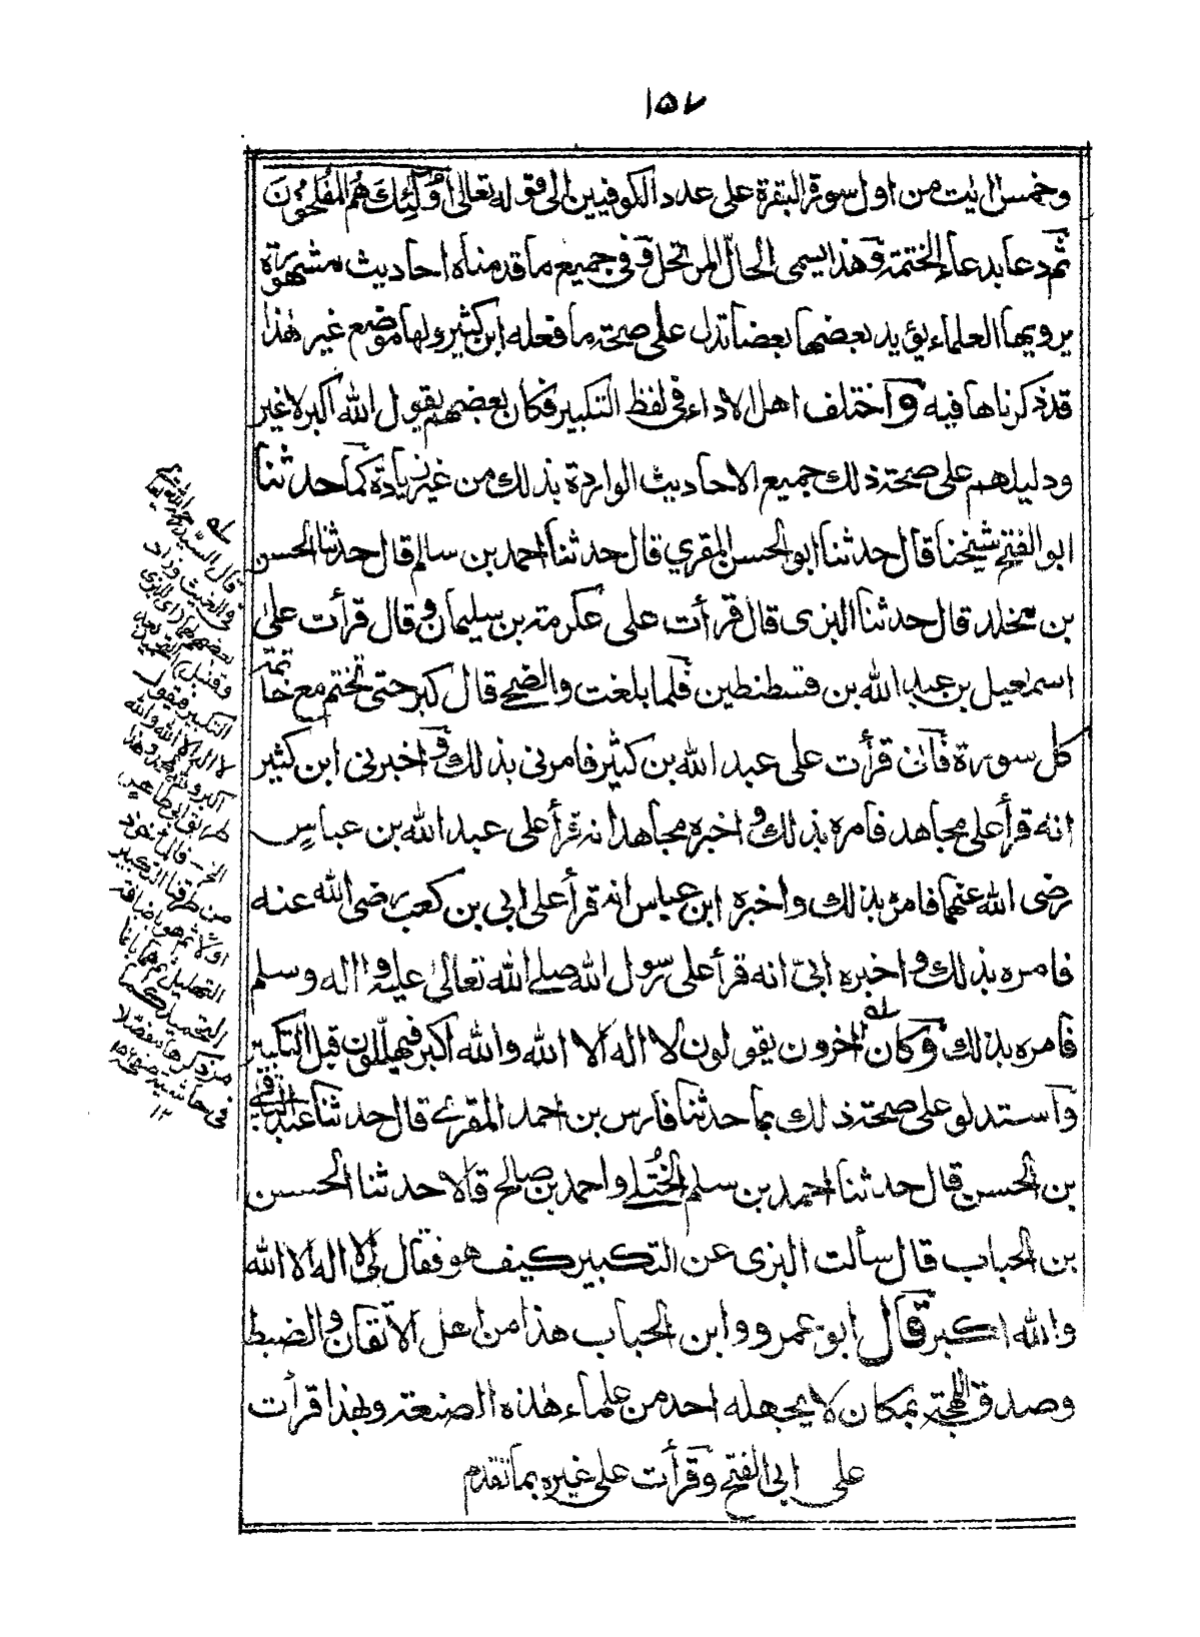 ١٥٧
وخمس اٰيٰت من اول سورة البقرة على عدد الكوفيين الى قوله تعالى اُولٰٓئِكَ هُمُ المُفْلِحُوْنَ
ثم دعا بدعاء الختمة وهذا يسمى الحالّ المرتحل وفى جميع ما قدمناه احاديث مشهورة
يرويها العلماء يؤيد بعضها بعضا تدل على صحة ما فعله ابن كثير ولها موضع غير هٰذا
قد ذكرناها فيه واختلف اهل الاداء فى لفظ التكبير فكان بعضهم يقول الله اكبر لا غير
ودليلهم على صحة ذلك جميع الاحاديث الواردة بذلك من غير زيادة كما حدثنا
ابو الفتح شيخنا قال حدثنا ابو الحسن المقري قال حدثنا احمد بن سالم قال حدثنا الحسن
بن مخلد قال حدثنا البزى قال قرأت على عكرمة بن سليمان وقال قرأت على
اسمٰعيل بن عبد الله بن قسطنطين فلما بلغت والضحى قال كبر حتى تختم مع خاتمة
كل سورة فانى قرأت على عبد الله بن كثير فامرنى بذلك واخبرنى ابن كثير
انه قرأ على مجاهد فامره بذلك واخبره مجاهد انه قرأ على عبد الله بن عباس
رضى الله عنهما فامره بذلك واخبره ابن عباس انه قرأ على ابي بن كعب رضى الله عنه
فامره بذلك واخبره ابيّ انه قرأ على رسول الله صلى الله تعالىٰ عليه واله وسلم
فامره بذلك وكان اٰخرون يقولون لا اله الا الله والله اكبر فيهلّلون قبل التكبير
واستدلو على صحة ذلك بما حدثنا فارس بن احمد المقرى قال حدثنا عبد الباقى
بن الحسن قال حدثنا احمد بن سلم الخُتُلى واحمد بن صالح قالا حدثنا الحسن
بن الحباب قال سألت البزى عن التكبير كيف هو فقال لى لا اله الا الله
والله اكبر قال ابو عمرو وابن الحباب هذا من اهل الاتقان والضبط
وصدق اللهجة بمكان لا يجهله احد من علماء هٰذه الصنعة وبهذا قرأت
على ابى الفتح وقرأت على غيره بما تقدم
له
قال السيد
فى الغيث وزاد
بعضهم لهما اى البزى
وقنبل
التكبير فيقول
لا اله الا الله والله
اكبر ولله الحمد وهذا
الخ
من طرقنا التكبير
اولا ثم هو باضافة
التهليل ثم هما باضافة
التحميد كما
مر ذكرها مفصلا
فى حاشية صفحه ١٥٦
١٢